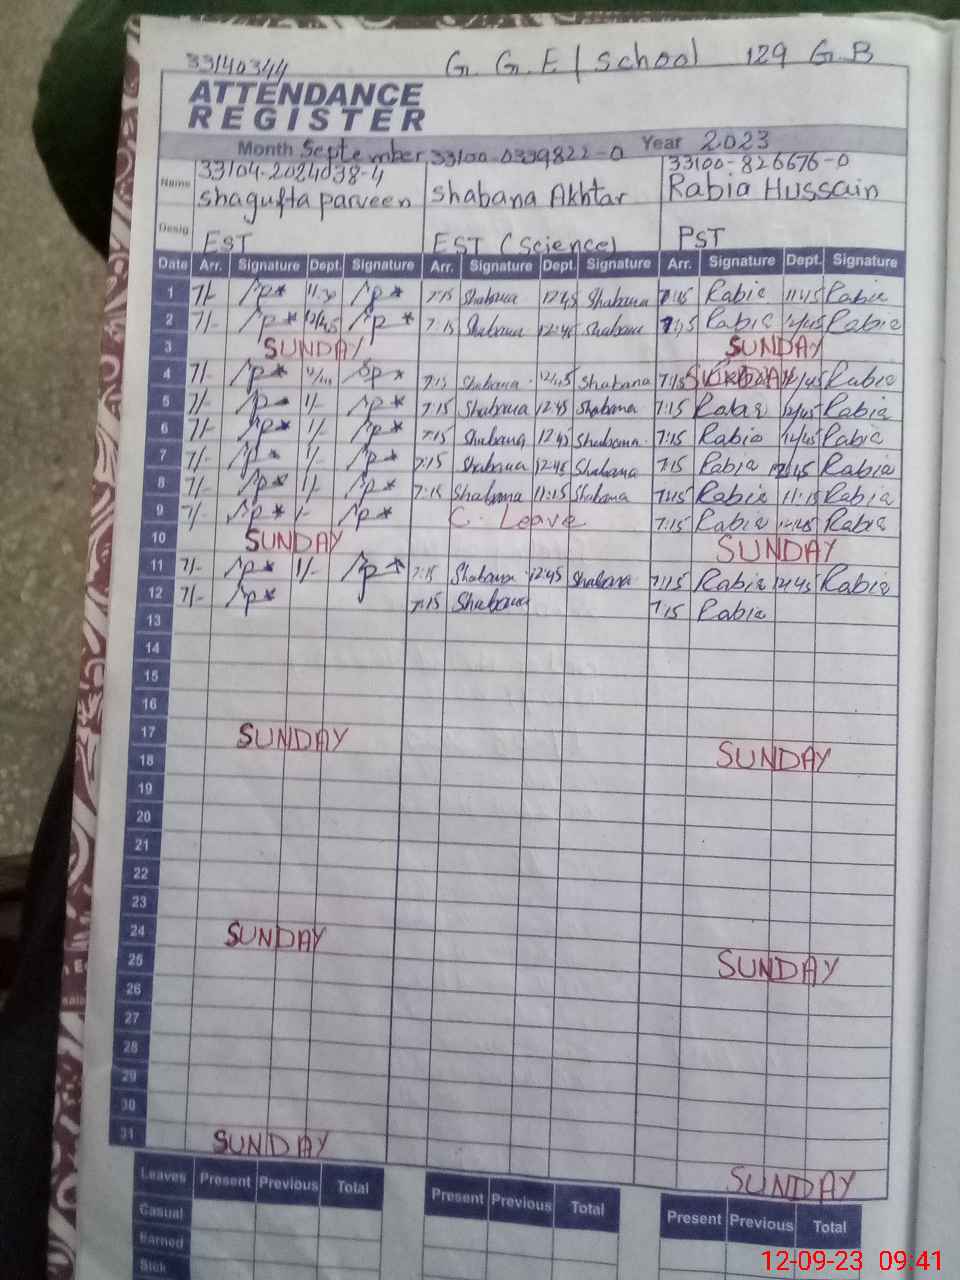 33140344 G. G. E / School 129 G.B
ATTENDANCE
REGISTER
Month September Year 2023
33104-2024038-4 33100-0339822-0 33100-826676-0
Name Shagufta Parveen Shabana Akhtar Rabia Hussain
Desig EST EST (Science) PST
Date Arr. Signature Dept. Signature Arr. Signature Dept. Signature Arr. Signature Dept. Signature
1 7/- 7:15 Shabana 12:45 Shabana 7:15 Rabia 11:45 Rabia
2 7/- 12/45 7:15 Shabana 12:45 Shabana 7:15 Rabia 12/45 Rabia
3 SUNDAY SUNDAY
4 7/- 7:15 Shabana 12:45 Shabana 7:15 12/45 Rabia
5 7/- 1/- 7:15 Shabana 12:45 Shabana 7:15 Rabia 12/45 Rabia
6 7/- 1/- 7:15 Shabana 12:45 Shabana 7:15 Rabia 12/45 Rabia
7 7/- 1/- 7:15 Shabana 12:45 Shabana 7:15 Rabia 12/45 Rabia
8 7/- 1/- 7:15 Shabana 11:15 Shabana 7:15 Rabia 11:15 Rabia
9 7/- 1/- C. Leave 7:15 Rabia 12:45 Rabia
10 SUNDAY SUNDAY
11 7/- 1/- 7:15 Shabana 12:45 Shabana 7:15 Rabia 12:45 Rabia
12 7/- 7:15 Shabana 7:15 Rabia
13
14
15
16
17 SUNDAY SUNDAY
18
19
20
21
22
23
24 SUNDAY SUNDAY
25
26
27
28
29
30
31 SUNDAY SUNDAY
Leaves Present Previous Total Present Previous Total Present Previous Total
Casual
Earned
Sick
12-09-23 09:41